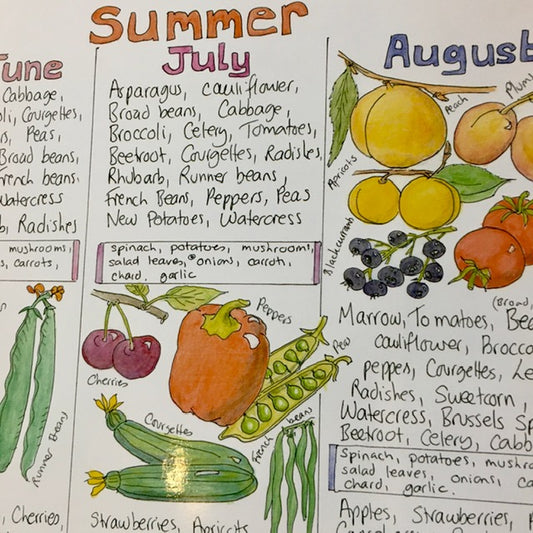 Summer
June
Cabbage,
Courgettes,
Peas,
Broad beans,
French beans.
Watercress
Radishes
mushrooms,
carrots,
Runner Beans
Cherries,
July
Asparagus, cauliflower,
Broad beans, Cabbage,
Broccoli, Celery, Tomatoes,
Beetroot, Courgettes, Radishes,
Rhubarb, Runner beans,
French Beans, Peppers, Peas
New Potatoes, Watercress
spinach, potatoes, mushroom,
salad leaves, onions, carroth,
chard, garlic
Cherries
Peppers
Peas
Courgettes
French beans
Strawberries, Apricots
August
Peach
Plums
Apricots
Blackcurrants
(Broad,
Marrow, Tomatoes,
cauliflower,
peppers, Courgettes,
Radishes, Sweetcorn
Watercress, Brussels
Beetroot, Celery,
Spinach, potatoes,
salad leaves, onions,
chard, garlic.
Apples, Strawberries,